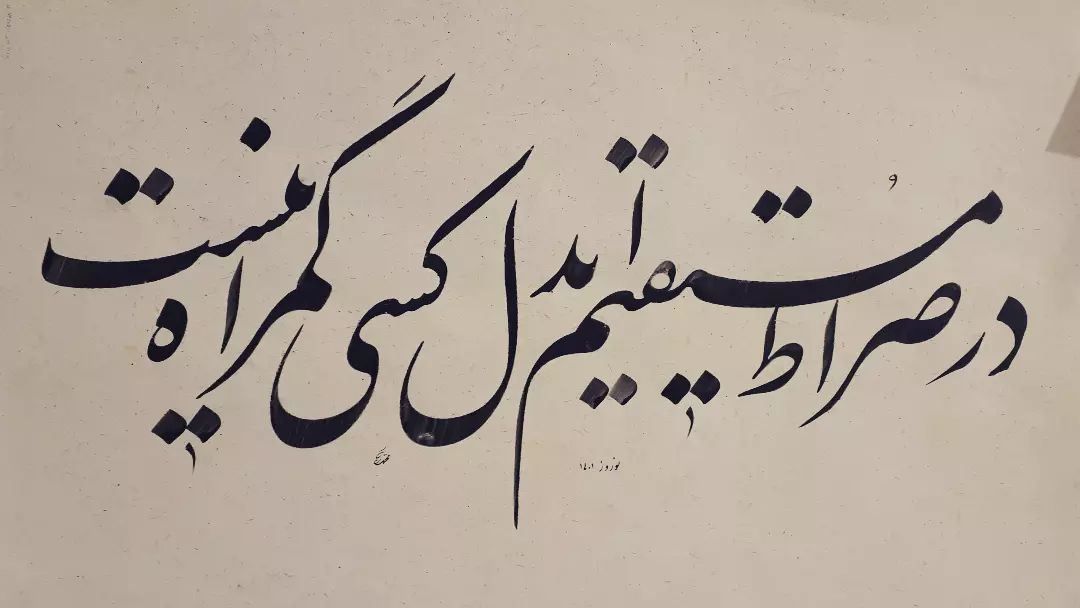 در صراط مستقیم ایدل کسی گمراه نیست
نوروز ۱۴۰۱